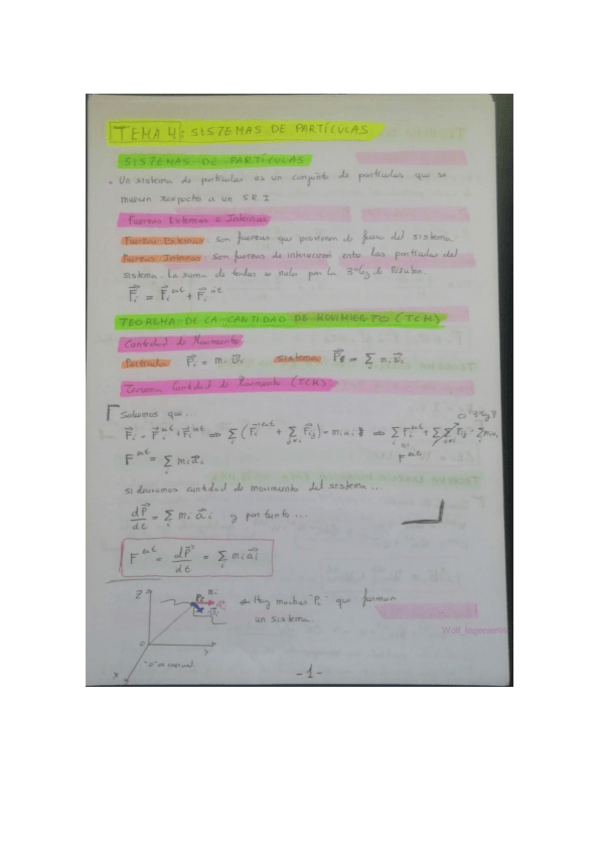 TEMA 4: SISTEMAS DE PARTÍCULAS
SISTEMAS DE PARTÍCULAS
• Un sistema de partículas es un conjunto de partículas que se
mueven respecto a un S R I
Fuerzas Externas e Internas
Fuerzas Externas: son fuerzas que provienen de fuera del sistema
Fuerzas Internas: Son fuerzas de interacción entre las partículas del
sistema. La suma de todas es nula por la 3ª ley de
F⃗i = F⃗i ext + F⃗i int
TEOREMA DE LA CANTIDAD DE MOVIMIENTO (TCM)
Cantidad de Movimiento
Partícula P⃗i = mi v⃗i sistema P⃗ = Σi mi v⃗i
Teorema Cantidad de Movimiento (TCM)
Sabemos que...
F⃗i = F⃗i ext + F⃗i int ⇒ Σi (F⃗i ext + Σj≠i F⃗ij) = mi ai ⇒ Σi F⃗i ext + ΣΣ F⃗ij = Σ mi ai
0 3ª ley
F ext = Σi mi a⃗i
F ext
si derivamos cantidad de movimiento del sistema...
dP⃗/dt = Σi mi a⃗i y por tanto...
F ext = dP⃗/dt = Σi mi a⃗i
Z Pi
Hay muchas "Pi" que forman
un sistema.
Wolf_Ingenieria
O Y
X "O" es inercial
-1-